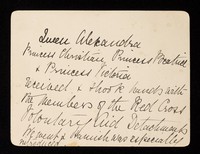 Queen Alexandra
Princess Christian, Princess Beatrice
& Princess Victoria
received & shook hands with
the members of the Red Cross
Voluntary Aid Detachments
present & was especially
introduced